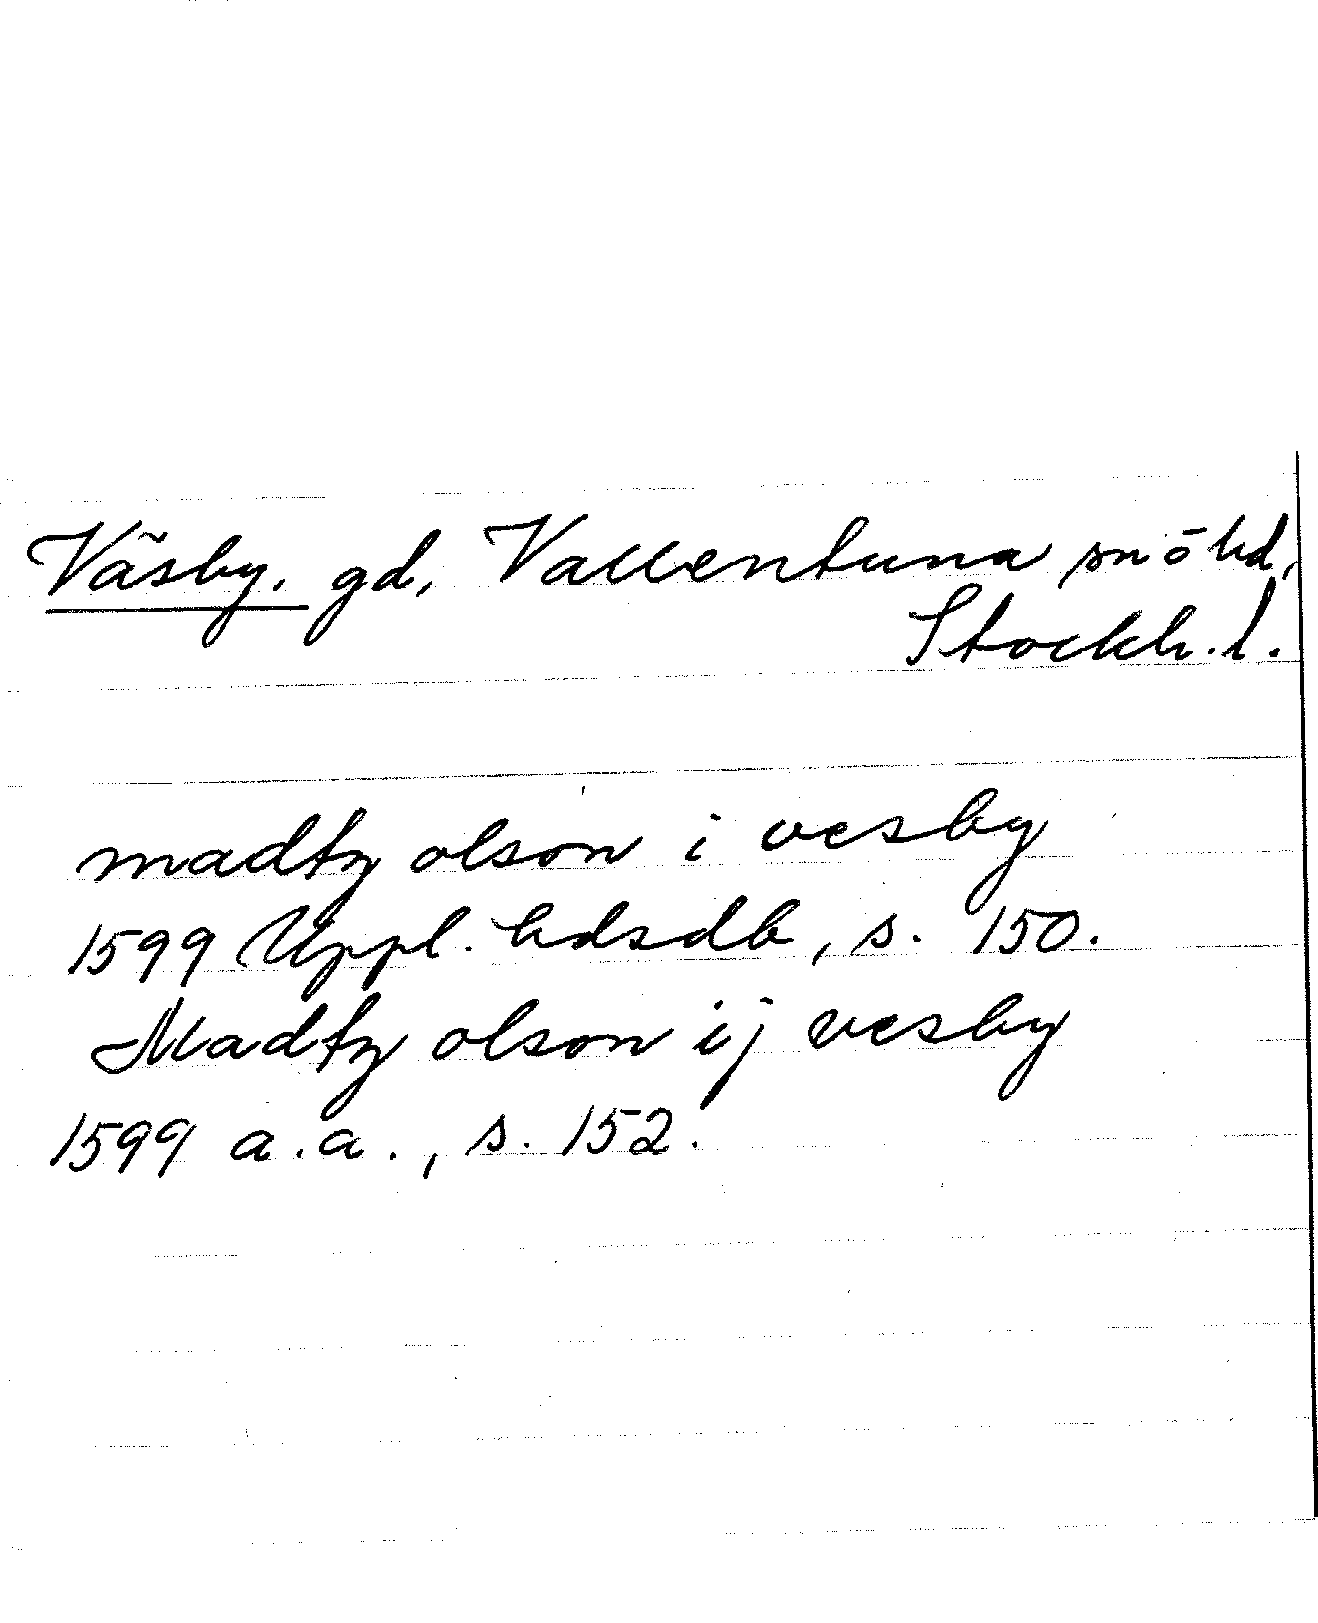 Väsby. gd, Vallentuna sn ō hd,
Stockh.l.
madtz olson i vesby
1599 Uppl. hdsdb, s. 150.
Madtz olson ij vesby
1599 a.a., s. 152.